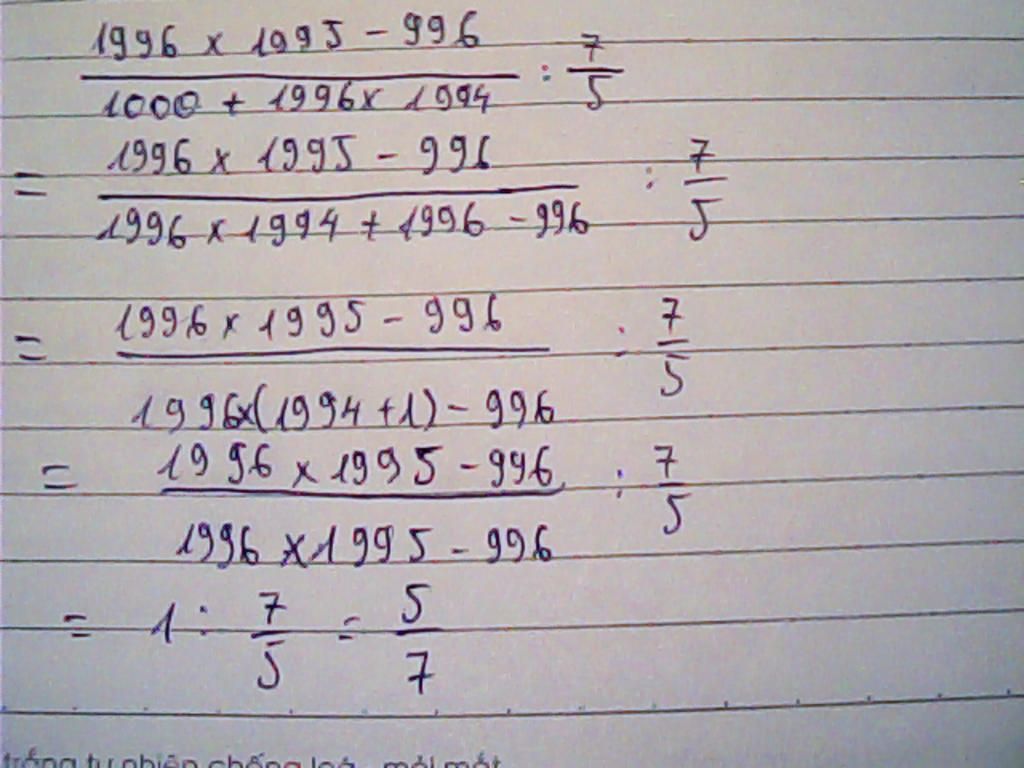 1996 x 1995 - 996
1000 + 1996 x 1994 : 7/5
= 1996 x 1995 - 996
1996 x 1994 + 1996 - 996 : 7/5
= 1996 x 1995 - 996
1996x(1994 + 1) - 996 : 7/5
= 1996 x 1995 - 996
1996 x 1995 - 996 : 7/5
= 1 : 7/5 = 5/7
trắng tự nhiên chống loá, mỏi mắt